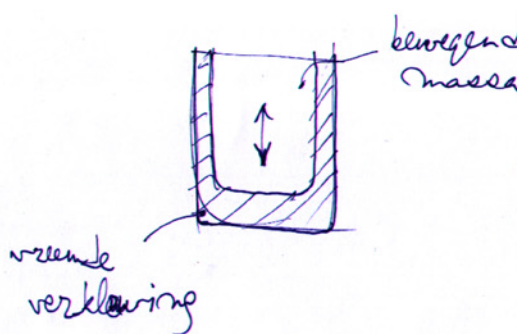 bewegende
massa
vreemde
verkleuring